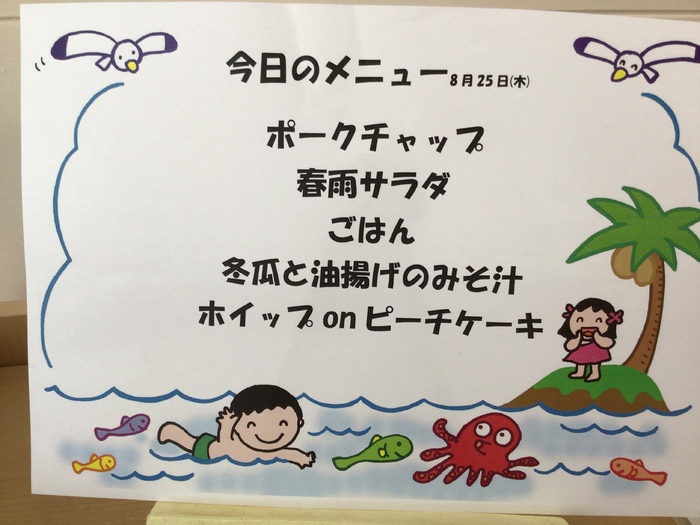 今日のメニュー8月25日(木)
ポークチャップ
春雨サラダ
ごはん
冬瓜と油揚げのみそ汁
ホイップonピーチケーキ